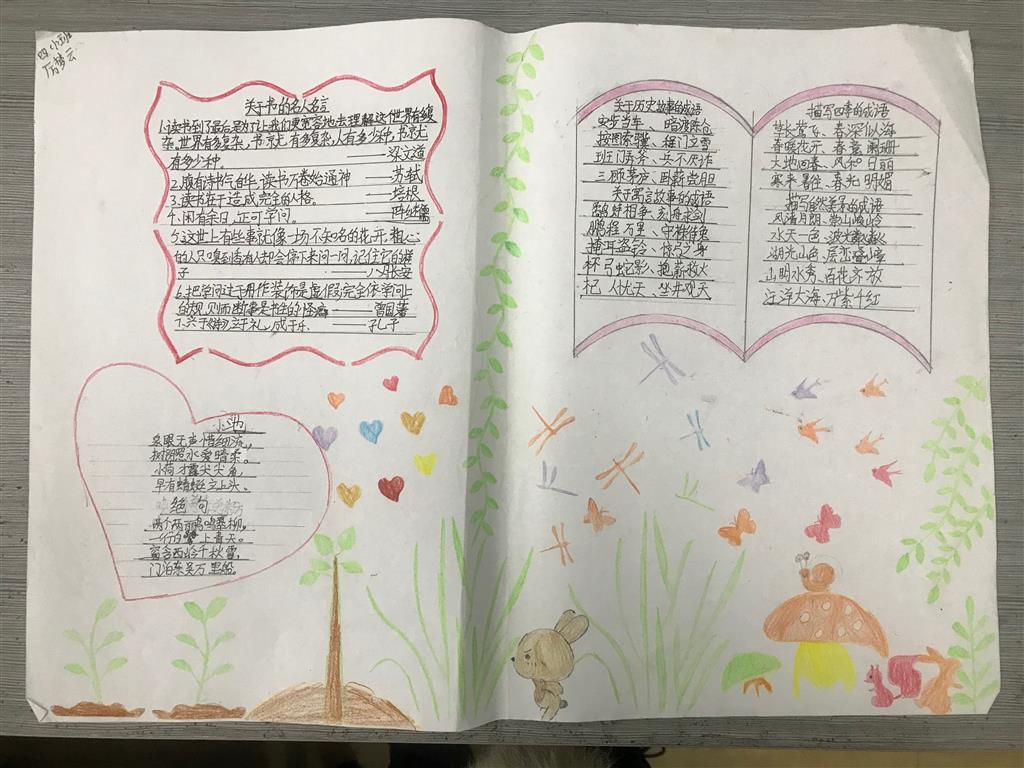 四(小)班
关于书的名人名言
1.读书到了最后是为了让我们更宽容地去理解这个世界有多复
杂,世界有多复杂,书就有多复杂,人有多少种,书就
有多少种。——梁文道
2.腹有诗书气自华,读书万卷始通神 ——苏轼
3.读书在于造成完全的人格。——培根
4.闲有余日,正可学问。——陈继儒
5.这世上有些事就像一场不知名的花开,粗心
的人只嗅到香有人却会停下来问一问,记住它的样
子 ——八月长安
6.把学问过于用作装饰是虚假完全依学问上
的规则而断事是书生的怪癖 ——曾国藩
7.兴于诗,立于礼,成于乐 ——孔子
小池
泉眼无声惜细流,
树阴照水爱晴柔。
小荷才露尖尖角
早有蜻蜓立上头。
绝句
两个两丽鸣翠柳,
一行白鹭上青天。
窗含西岭千秋雪,
门泊东吴万里船。
关于历史故事的成语
安步当车、暗渡陈仓
按图索骥、程门立雪
班门弄斧、兵不厌诈
三顾茅庐、卧薪尝胆
关于寓言故事的成语
鹬蚌相争、刻舟求剑
鹏程万里、守株待兔
掩耳盗铃、惊弓之鸟
杯弓蛇影、抱薪救火
杞人忧天、坐井观天
描写四季的成语
草长莺飞、春深似海
春暖花开、春意阑珊
大地回春、风和日丽
寒来暑往、春光明媚
描写自然美景的成语
风清月朗、崇山峻岭
水天一色、波光粼粼
湖光山色、层峦叠嶂
山明水秀、百花齐放
汪洋大海、万紫千红